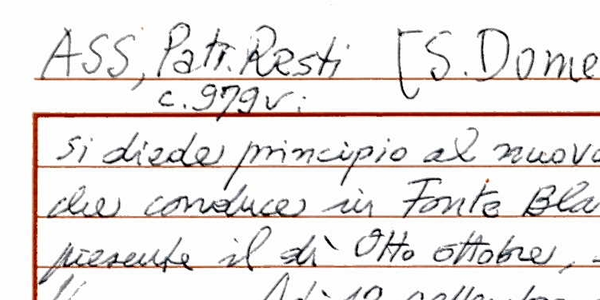 ASS, Patr. Resti [S. Dome
c. 979v.
si diede principio al nuovo
che conduce in Fonte Bla
presente il dì Otto ottobre,
Adì 19